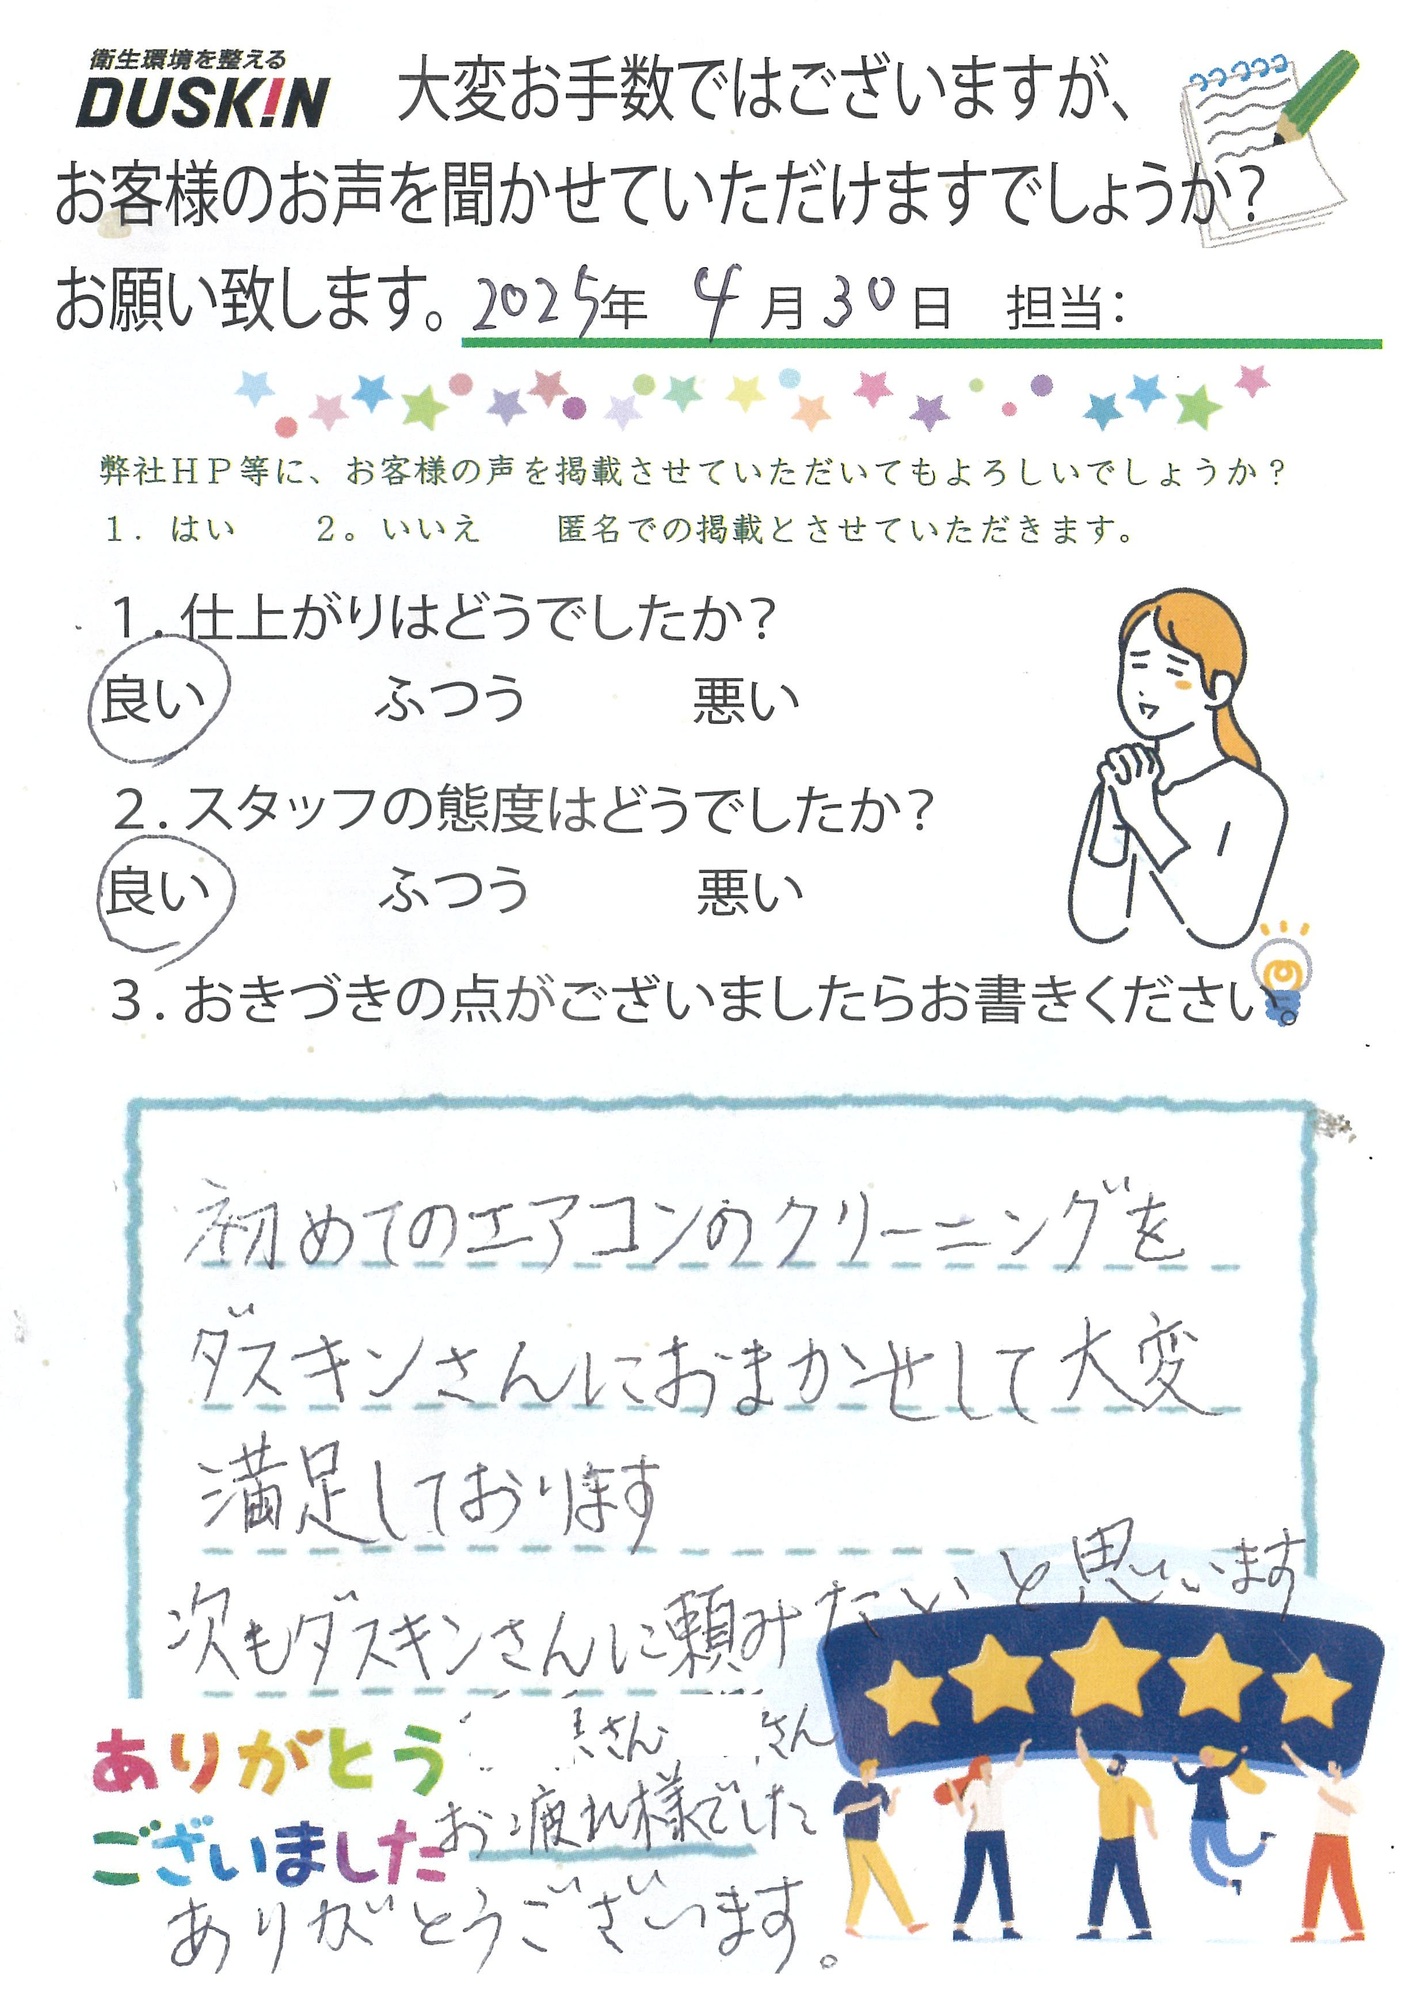 衛生環境を整える
DUSKIN
大変お手数ではございますが、
お客様のお声を聞かせていただけますでしょうか?
お願い致します。2025年 4月30日 担当:
弊社HP等に、お客様の声を掲載させていただいてもよろしいでしょうか?
1. はい 2。いいえ 匿名での掲載とさせていただきます。
1.仕上がりはどうでしたか?
良い ふつう 悪い
2.スタッフの態度はどうでしたか?
良い ふつう 悪い
3.おきづきの点がございましたらお書きください。
初めてのエアコンのクリーニングを
ダスキンさんにおまかせして大変
満足しております
次もダスキンさんに頼みたいと思います
さん さん
お疲れ様でした
ありがとうございます。
ありがとう
ございました